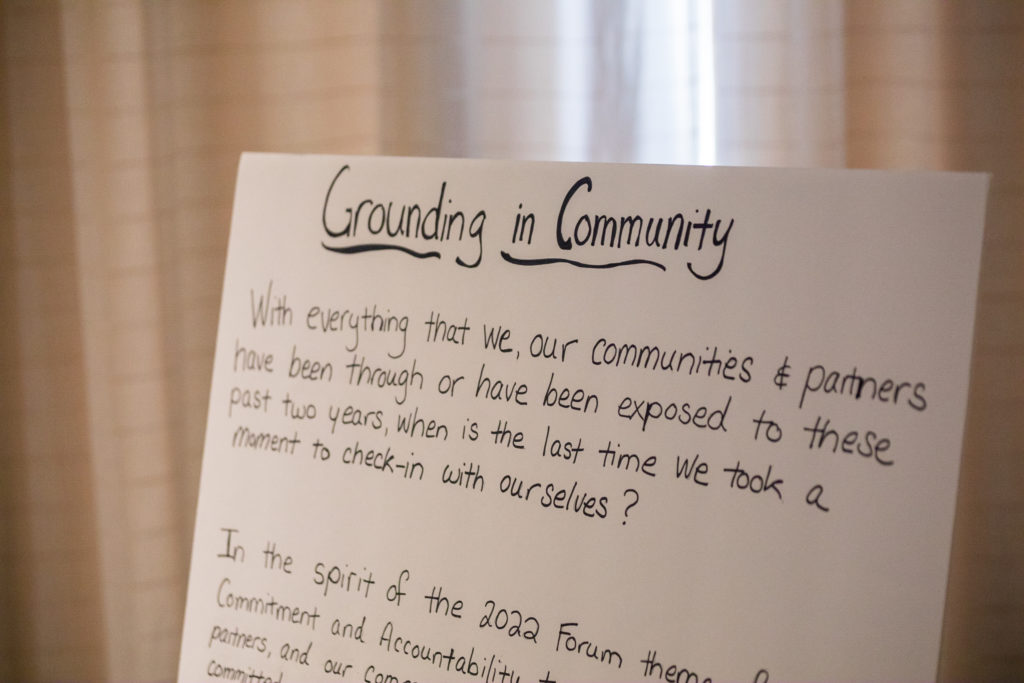 Grounding in Community
With everything that we, our communities & partners
have been through or have been exposed to these
past two years, when is the last time we took a
moment to check-in with ourselves?
In the spirit of the 2022 Forum theme
Commitment and Accountability
partners, and our
committed